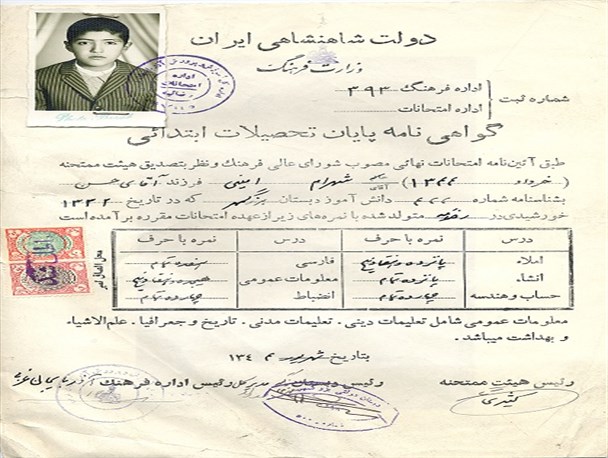 دولت شاهنشاهی ایران
وزارت فرهنگ
شماره ثبت
اداره فرهنگ ۳۹۳
اداره امتحانات
اداره
امتحانات
گواهی نامه پایان تحصیلات ابتدائی
طبق آئین‌نامه امتحانات نهائی مصوب شورای عالی فرهنگ و نظر بتصدیق هیئت ممتحنه
(خرداد ۱۳۴۴) آقای شهرام امینی فرزند آقای حسن
بشناسنامه شماره ۴۲۲ دانش آموز دبستان که در تاریخ ۱۳۳۲
خورشیدی در متولد شده با نمره‌های زیر از عهده امتحانات مقرره برآمده است
درس نمره با حرف درس نمره با حرف
املاء پانزده و هفتاد و پنج فارسی تمام
انشاء پانزده تمام معلومات عمومی هیجده و هفتاد و پنج
حساب و هندسه چهارده تمام انضباط تمام
محل الصاق تمبر
باطل شد
معلومات عمومی شامل تعلیمات دینی . تعلیمات مدنی . تاریخ و جغرافیا . علم‌الاشیاء
و بهداشت میباشد .
بتاریخ شهریور ۱۳۴۴
رئیس هیئت ممتحنه رئیس دبستان مدیر کل رئیس اداره فرهنگ آذربایجان غربی